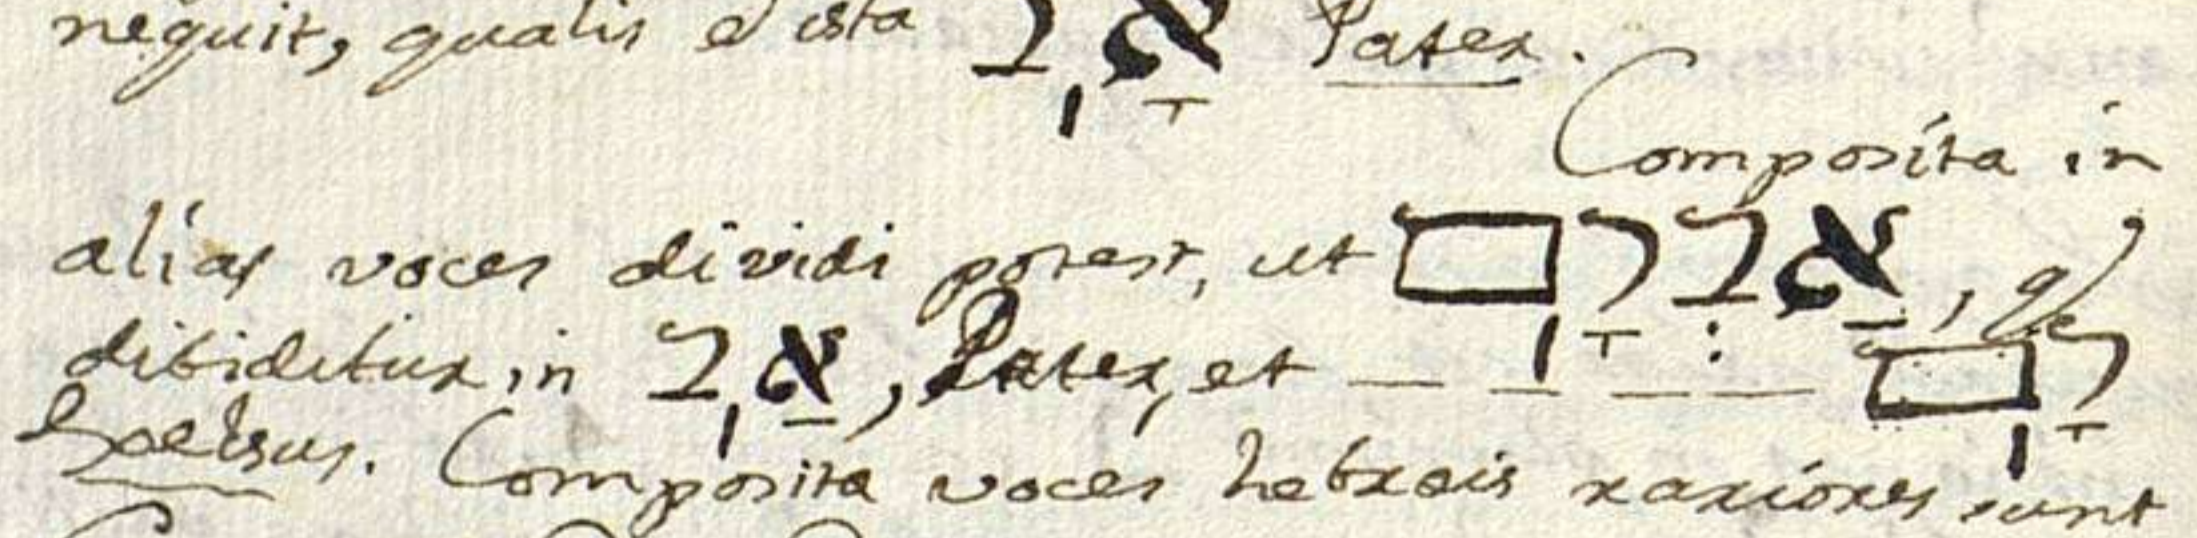 nequit, qualis e ista אָֽב Pater.
Composita in
alias voces dividi potest, ut אַבְרָֽם, q
dibiditur in אַֽב, Pater, et — — — — רָֽם
Excelsus. Composita voces hebræis rariores sunt